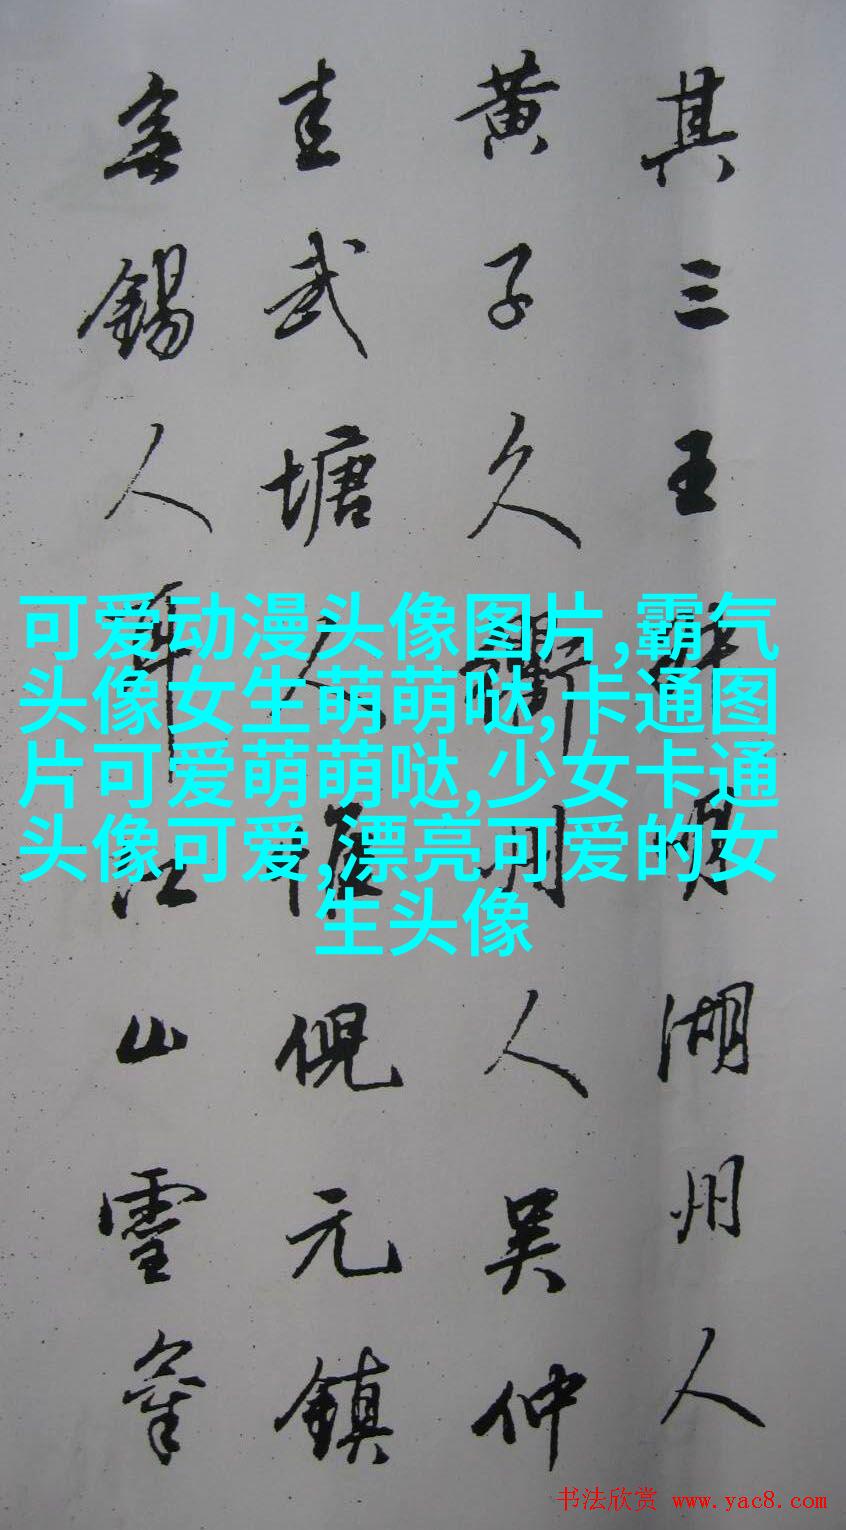 其三王叔明湖州人
黄子久衢州人吴仲
圭武塘人倪元鎮
無錫人耳江山靈
可爱动漫头像图片,霸气
头像女生萌萌哒,卡通图
片可爱萌萌哒,少女卡通
头像可爱,漂亮可爱的女
生头像
书法欣赏 www.yac8.com